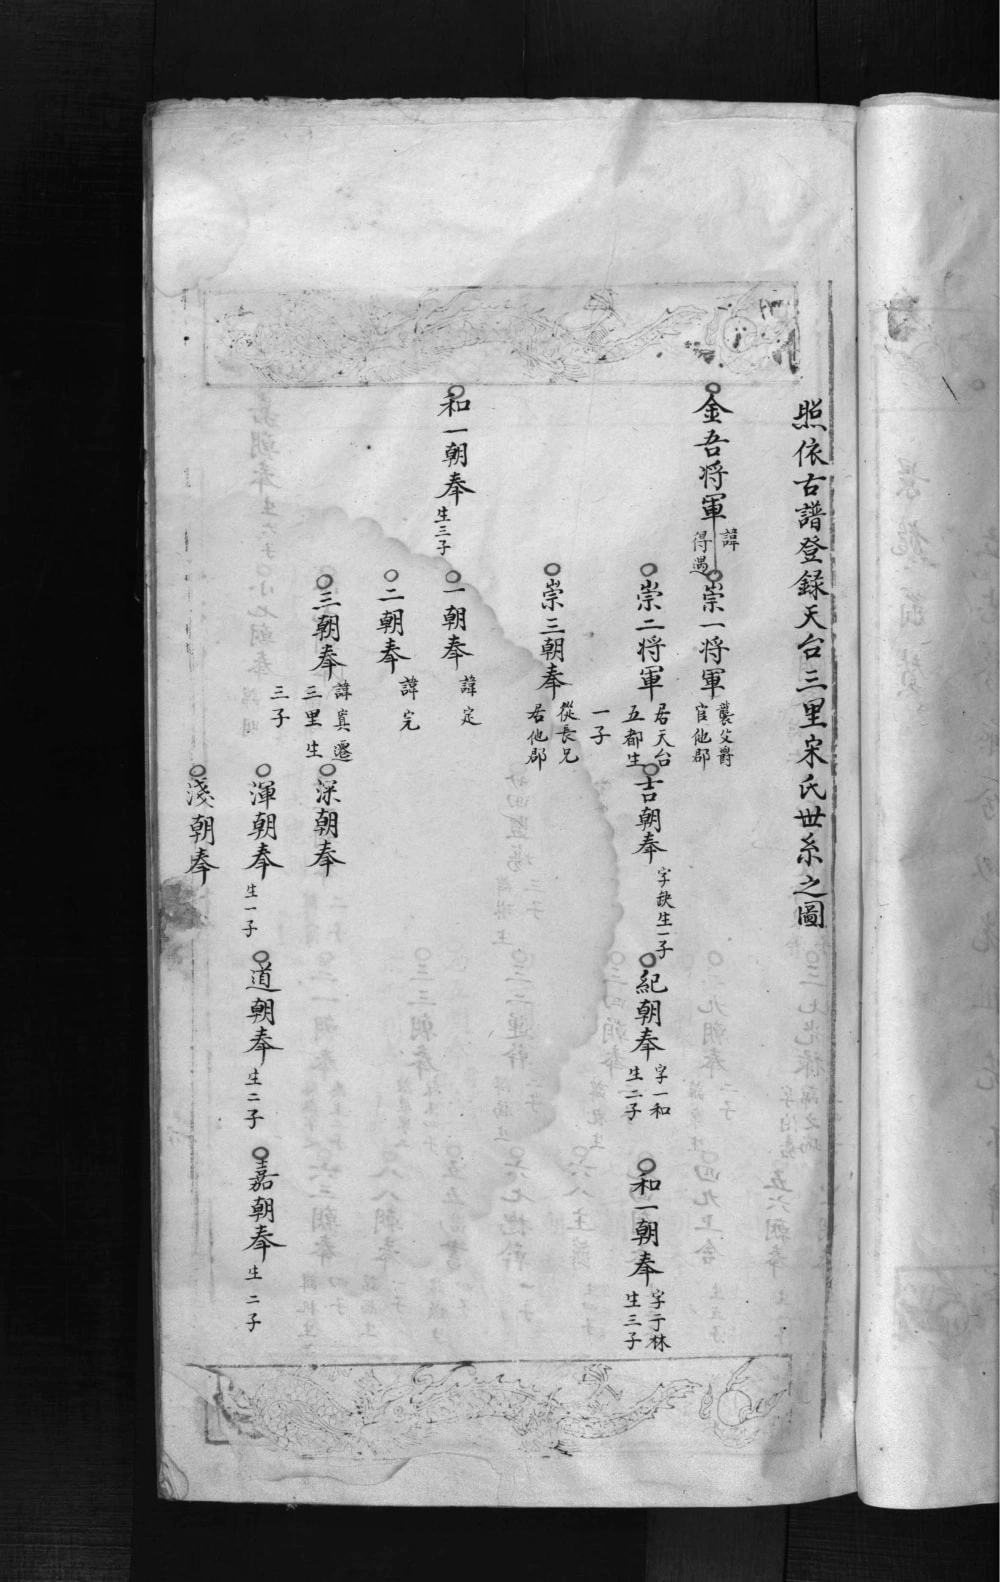 照依古譜登錄天台三里宋氏世系之圖
金吾將軍 諱得遇
崇一將軍 襲父爵官他郡
崇二將軍 居天台五都生一子
吉朝奉 字缺生一子
紀朝奉 字一和生二子
和一朝奉 字于林生三子
崇三朝奉 從長兄居他郡
和一朝奉 生三子
一朝奉 諱定
二朝奉 諱完
三朝奉 諱寘遷三里生三子
深朝奉
渾朝奉 生一子
道朝奉 生二子
嘉朝奉 生二子
淺朝奉